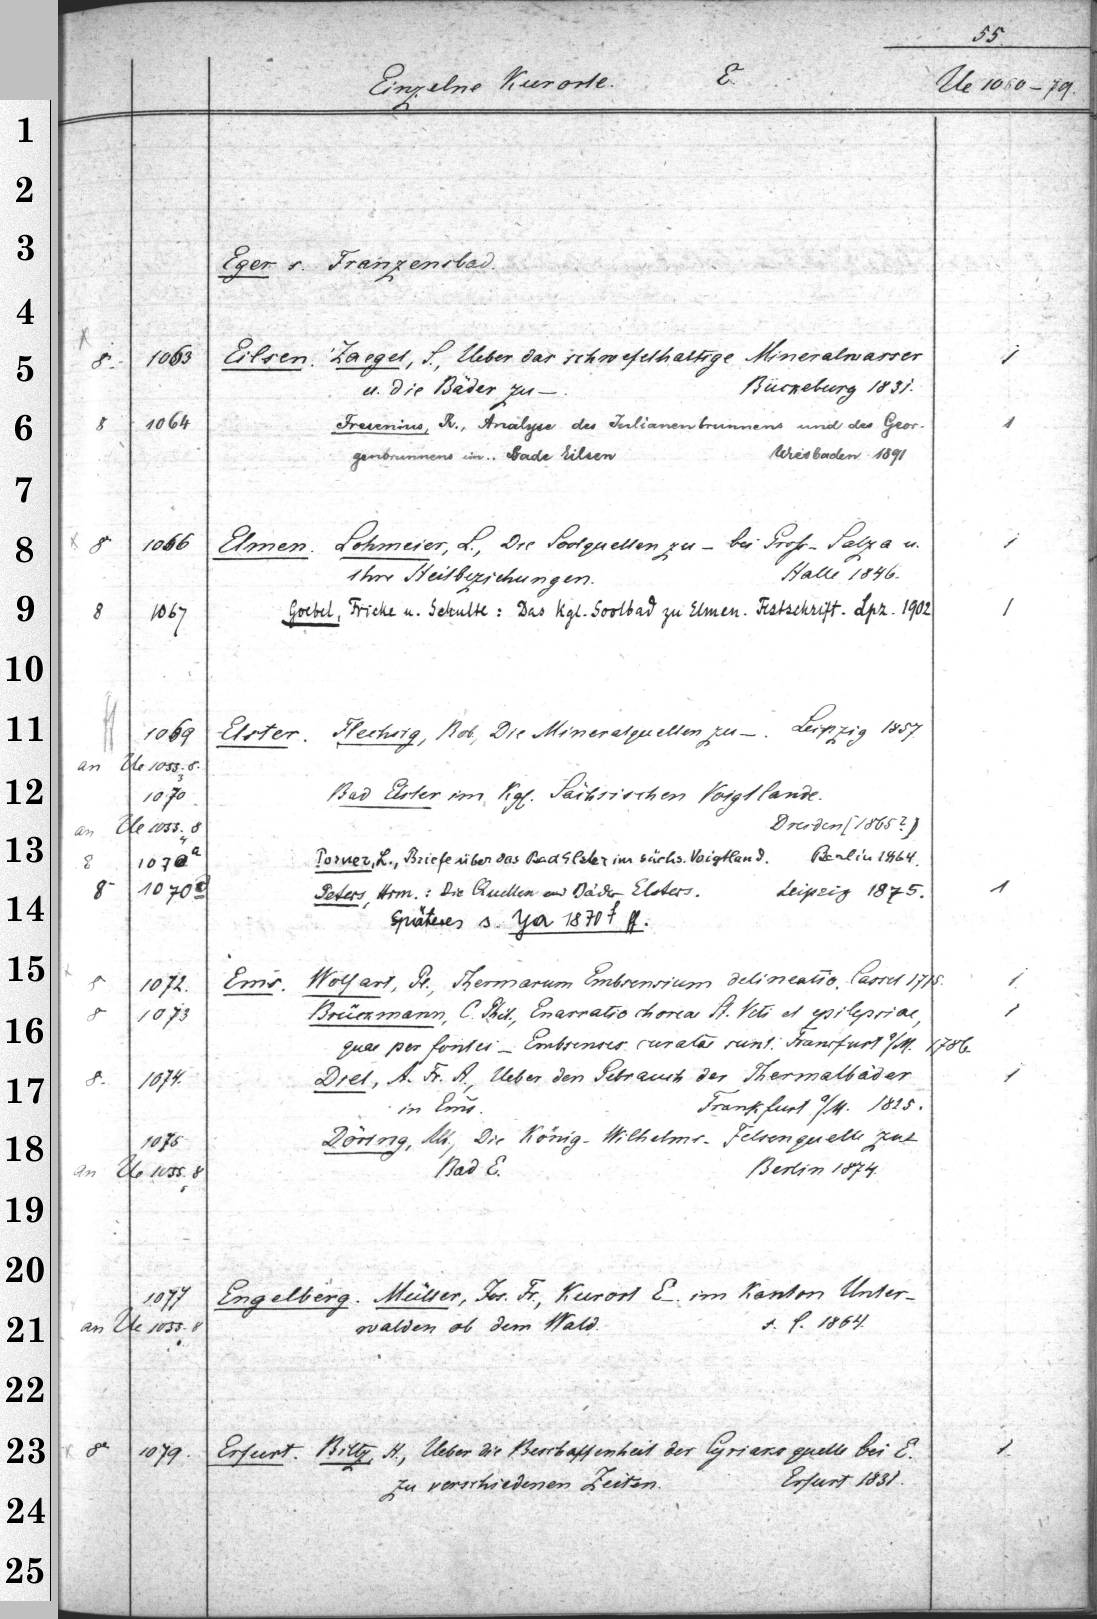 55.
Einzelne Kurorte. E. Ue 1060-79.
1
2
3
Eger s. Franzensbad.
4
5 8. 1063 Eilsen. Zaegel, S., Ueber das schwefelhaltige Mineralwasser 1
u. die Bäder zu —. Bückeburg 1831.
6 8 1064 Fresenius, R., Analyse des Julianenbrunnens und des Geor- 1
genbrunnens im .. Bade Eilsen Wiesbaden 1891
7
8 8 1066 Elmen. Lohmeier, L., Die Soolquellen zu — bei Gross-Salza u. 1
ihre Heilbeziehungen. Halle 1846.
9 8 1067 Goebel, Fricke u. Schulte: Das Kgl. Soolbad zu Elmen. Festschrift. Lpz. 1902 1
10
11 1069 Elster. Flechsig, Rob., Die Mineralquellen zu —. Leipzig 1857
an Ue 1055. 8.
3
12 1070 Bad Elster im Kgl. Sächsischen Voigtlande.
an Ue 1055. 8 Dresden (1865?)
4
13 8 1070a Porner, L., Briefe über das Bad Elster im sächs. Voigtland. Berlin 1864.
14 8 1070 Peters, Herm.: Die Quellen und Bäder Elsters. Leipzig 1875. 1
Späteres s. Ya 1870f ff.
15 8 1072. Ems. Wolfart, P., Thermarum Embsensium delineatio. Cassel 1715. 1
16 8 1073 Brückmann, C. Phil., Enarratio choreae St. Viti et epilepsiae, 1
quae per fontes — Embsenses curatae sunt. Frankfurt a/M. 1786.
17 8. 1074. Diel, A. Fr. A., Ueber den Gebrauch der Thermalbäder 1
in Ems. Frankfurt a/M. 1825.
18 1075 Döring, Alb., Die König-Wilhelms-Felsenquelle zu
an Ue 1055. 8 Bad E. Berlin 1874.
5
19
20
1077 Engelberg. Müller, Jos. Fr., Kurort E. im Kanton Unter-
21 an Ue 1055. 8 walden ob dem Wald. s. l. 1864.
22
23 8° 1079. Erfurt. Biltz, H., Ueber die Beschaffenheit der Cyriaxquelle bei E. 1.
zu verschiedenen Zeiten. Erfurt 1831.
24
25